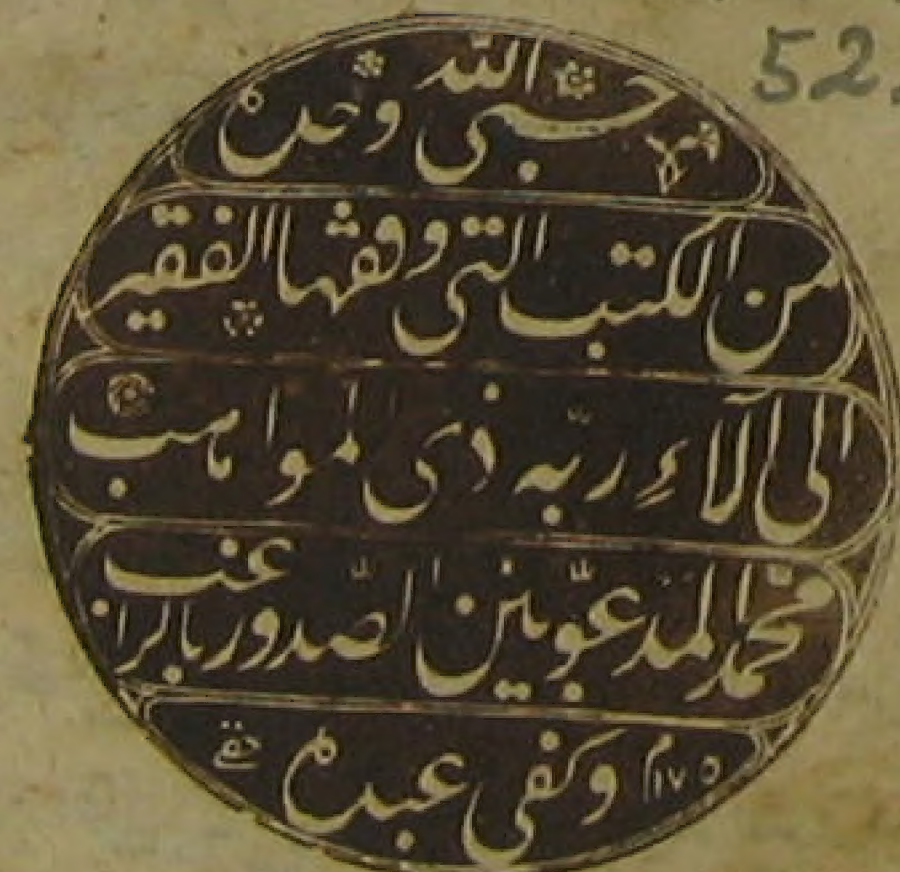 52
حسبى الله وحده
من الكتب التى وقفها الفقير
الى آلاء ربّه ذى المواهب
محمد المدعوّ بين الصّدور بالراغب
١١٧٥ وكفى عبده